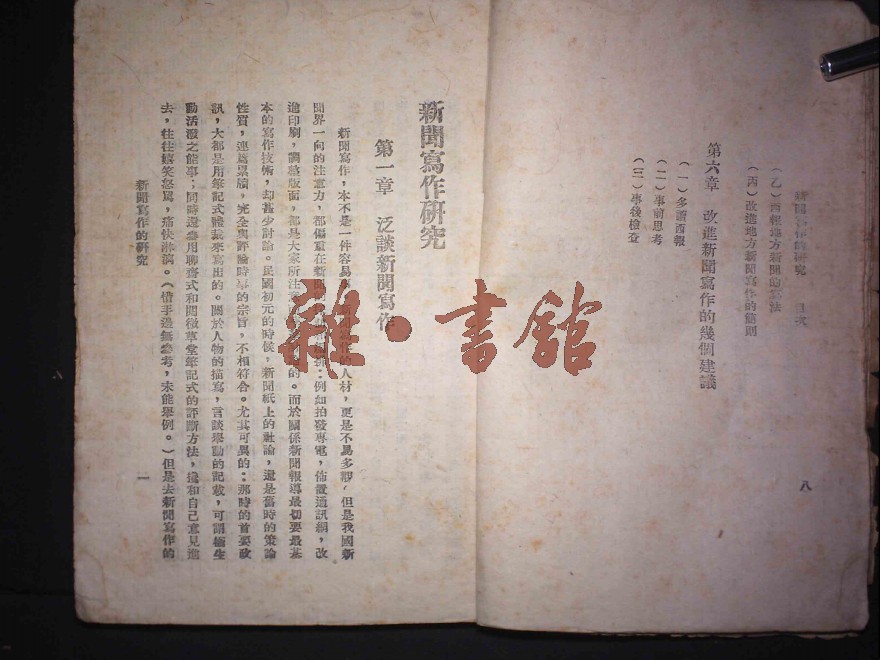 新聞寫作的研究 目次
(乙)西報地方新聞的寫法
(丙)改進地方新聞寫作的簡則
第六章 改進新聞寫作的幾個建議
(一)多讀西報
(二)事前思考
(三)事後檢查
八
新聞寫作研究
第一章 泛談新聞寫作
新聞寫作,本不是一件容易 作的人材,更是不易多得,但是我國新
聞界一向的注意力,都偏重在新聞 排:例如拍發專電,佈置通訊網,改
進印刷,調整版面,都是大家所注意 的。而於關係新聞報導最切要最基
本的寫作技術,却甚少討論。民國初元的時候,新聞紙上的社論,還是舊時的策論
性質,連篇累牘,完全與評論時事的宗旨,不相符合。尤其可異的:那時的首要政
訊,大都是用筆記式體裁來寫出的。關於人物的描寫,言談舉動的記載,可謂極生
動活潑之能事;同時還盡用聊齋式和閱微草堂筆記式的評斷方法,攙和自己意見進
去,往往嬉笑怒罵,痛快淋漓。(惜手邊無參考,未能舉例。)但是去新聞寫作的
新聞寫作的研究
一
雜·書館